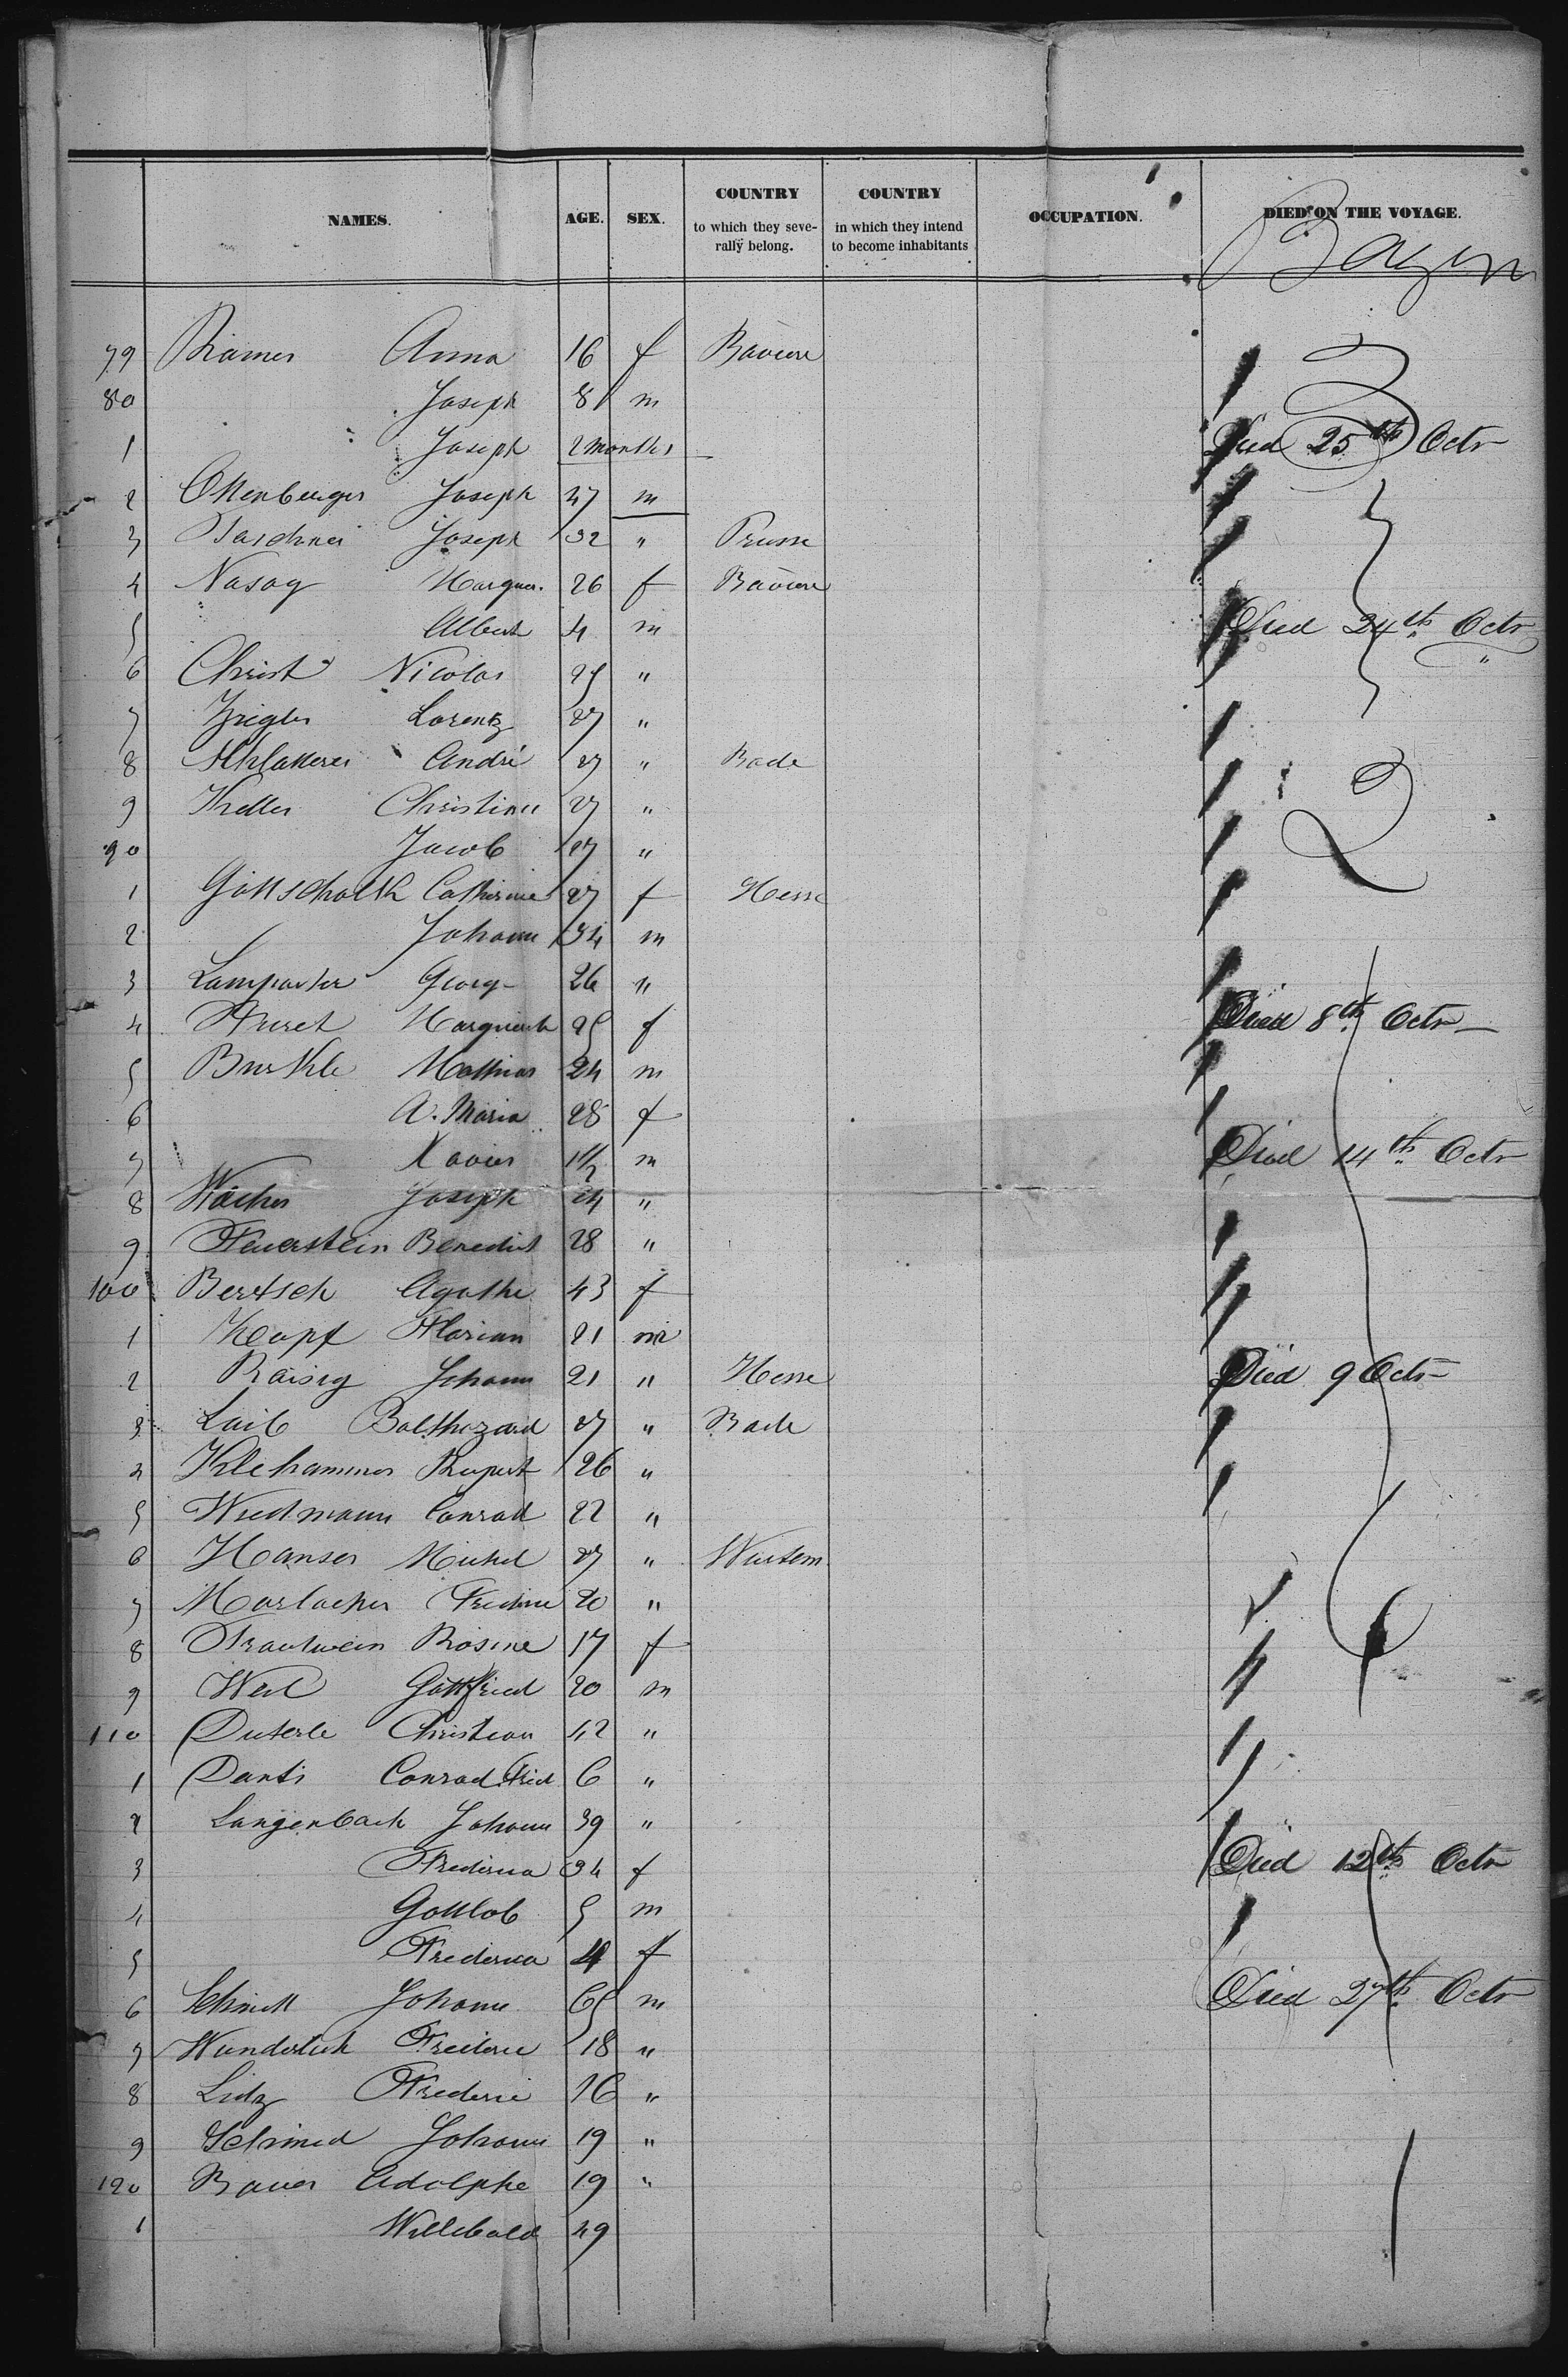 NAMES. AGE. SEX. COUNTRY to which they severally belong. COUNTRY in which they intend to become inhabitants OCCUPATION. DIED ON THE VOYAGE.
79 Ramer Anna 16 f Bavière
80 Joseph 8 m
1 Joseph 2 months Died 25th Octr
2 Ottenburger Joseph 47 m
3 Joseph 32 " Prusse
4 Nasag Margar. 26 f Bavière
5 Albert 4 m Died 24th Octr
6 Christ Nicolas 25 " "
7 Zeigler Lorentz 27 "
8 Schlatterer André 27 " Bade
9 Keller Christine 27 "
90 Jacob 17 "
1 Gottschalk Catherine 27 f Hesse
2 Johann 34 m
3 Lamparter Georg 26 "
4 Marguerit 25 f Died 8th Octr
5 Burkle Mathias 24 m
6 A. Maria 28 f
7 Xavier 1½ m Died 14th Octr
8 Wacker Joseph 24 "
9 Feuerstein Benedict 28 "
100 Bertsch Agathe 43 f
1 Kopf Florian 21 m
2 Raisig Johann 21 " Hesse Died 9 Octr
3 Laib Balthazard 27 " Bade
4 Klehammer Rupert 26 "
5 Wiedmann Conrad 22 "
6 Hanser Michel 27 " Wurtem
7 Marlacher Frederic 20 "
8 Trautwein Rosine 17 f
9 Weil Gottfried 20 m
110 Duterle Christian 42 "
1 Danti Conrad Fried 6 "
2 Langenbach Johann 39 "
3 Frederica 34 f Died 12th Octr
4 Gottlob 5 m
5 Frederica 4 f
6 Schmitt Johann 65 m Died 27th Octr
7 Wunderlich Frederic 18 "
8 Lutz Frederic 16 "
9 Schmid Johann 19 "
120 Bauer Adolphe 19 "
1 Willibald 49